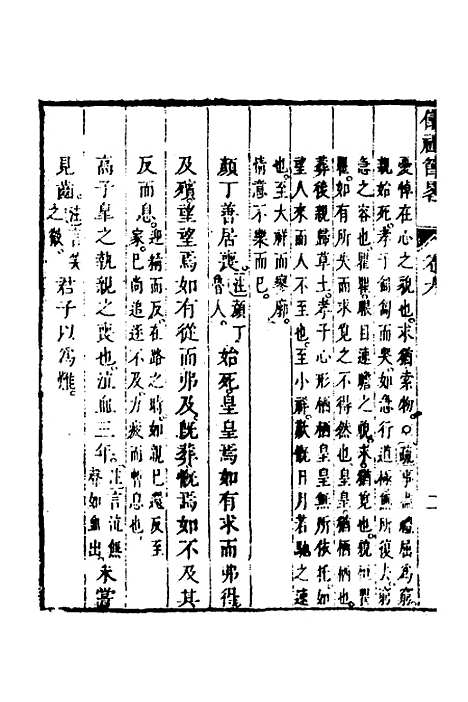 儀禮節畧 卷九 二
憂悼在心之貌也求猶索物○疏事盡禮屈為窮
親始死孝子匍匐而哭如急行道極無所復去窮
急之容也瞿瞿眼目速瞻之貌求猶覓也貌恒
瞿如有所失而求覓之不得然也皇皇猶栖栖也
葬後親歸草土孝子心形栖栖皇皇無所依托如
望人來而人不至也至小祥歎慨日月若馳之速
也至大祥而寥廓
情意不樂而已
顏丁善居喪注顏丁魯人始死皇皇焉如有求而弗得
及殯望望焉如有從而弗及既葬慨焉如不及其
反而息迎精而反在路之時如親已還反至家巳尚追逐不及力疲而暫息也
高子皐之執親之喪也泣血三年注言泣無聲如血出未嘗
見齒注言笑之微君子以為難